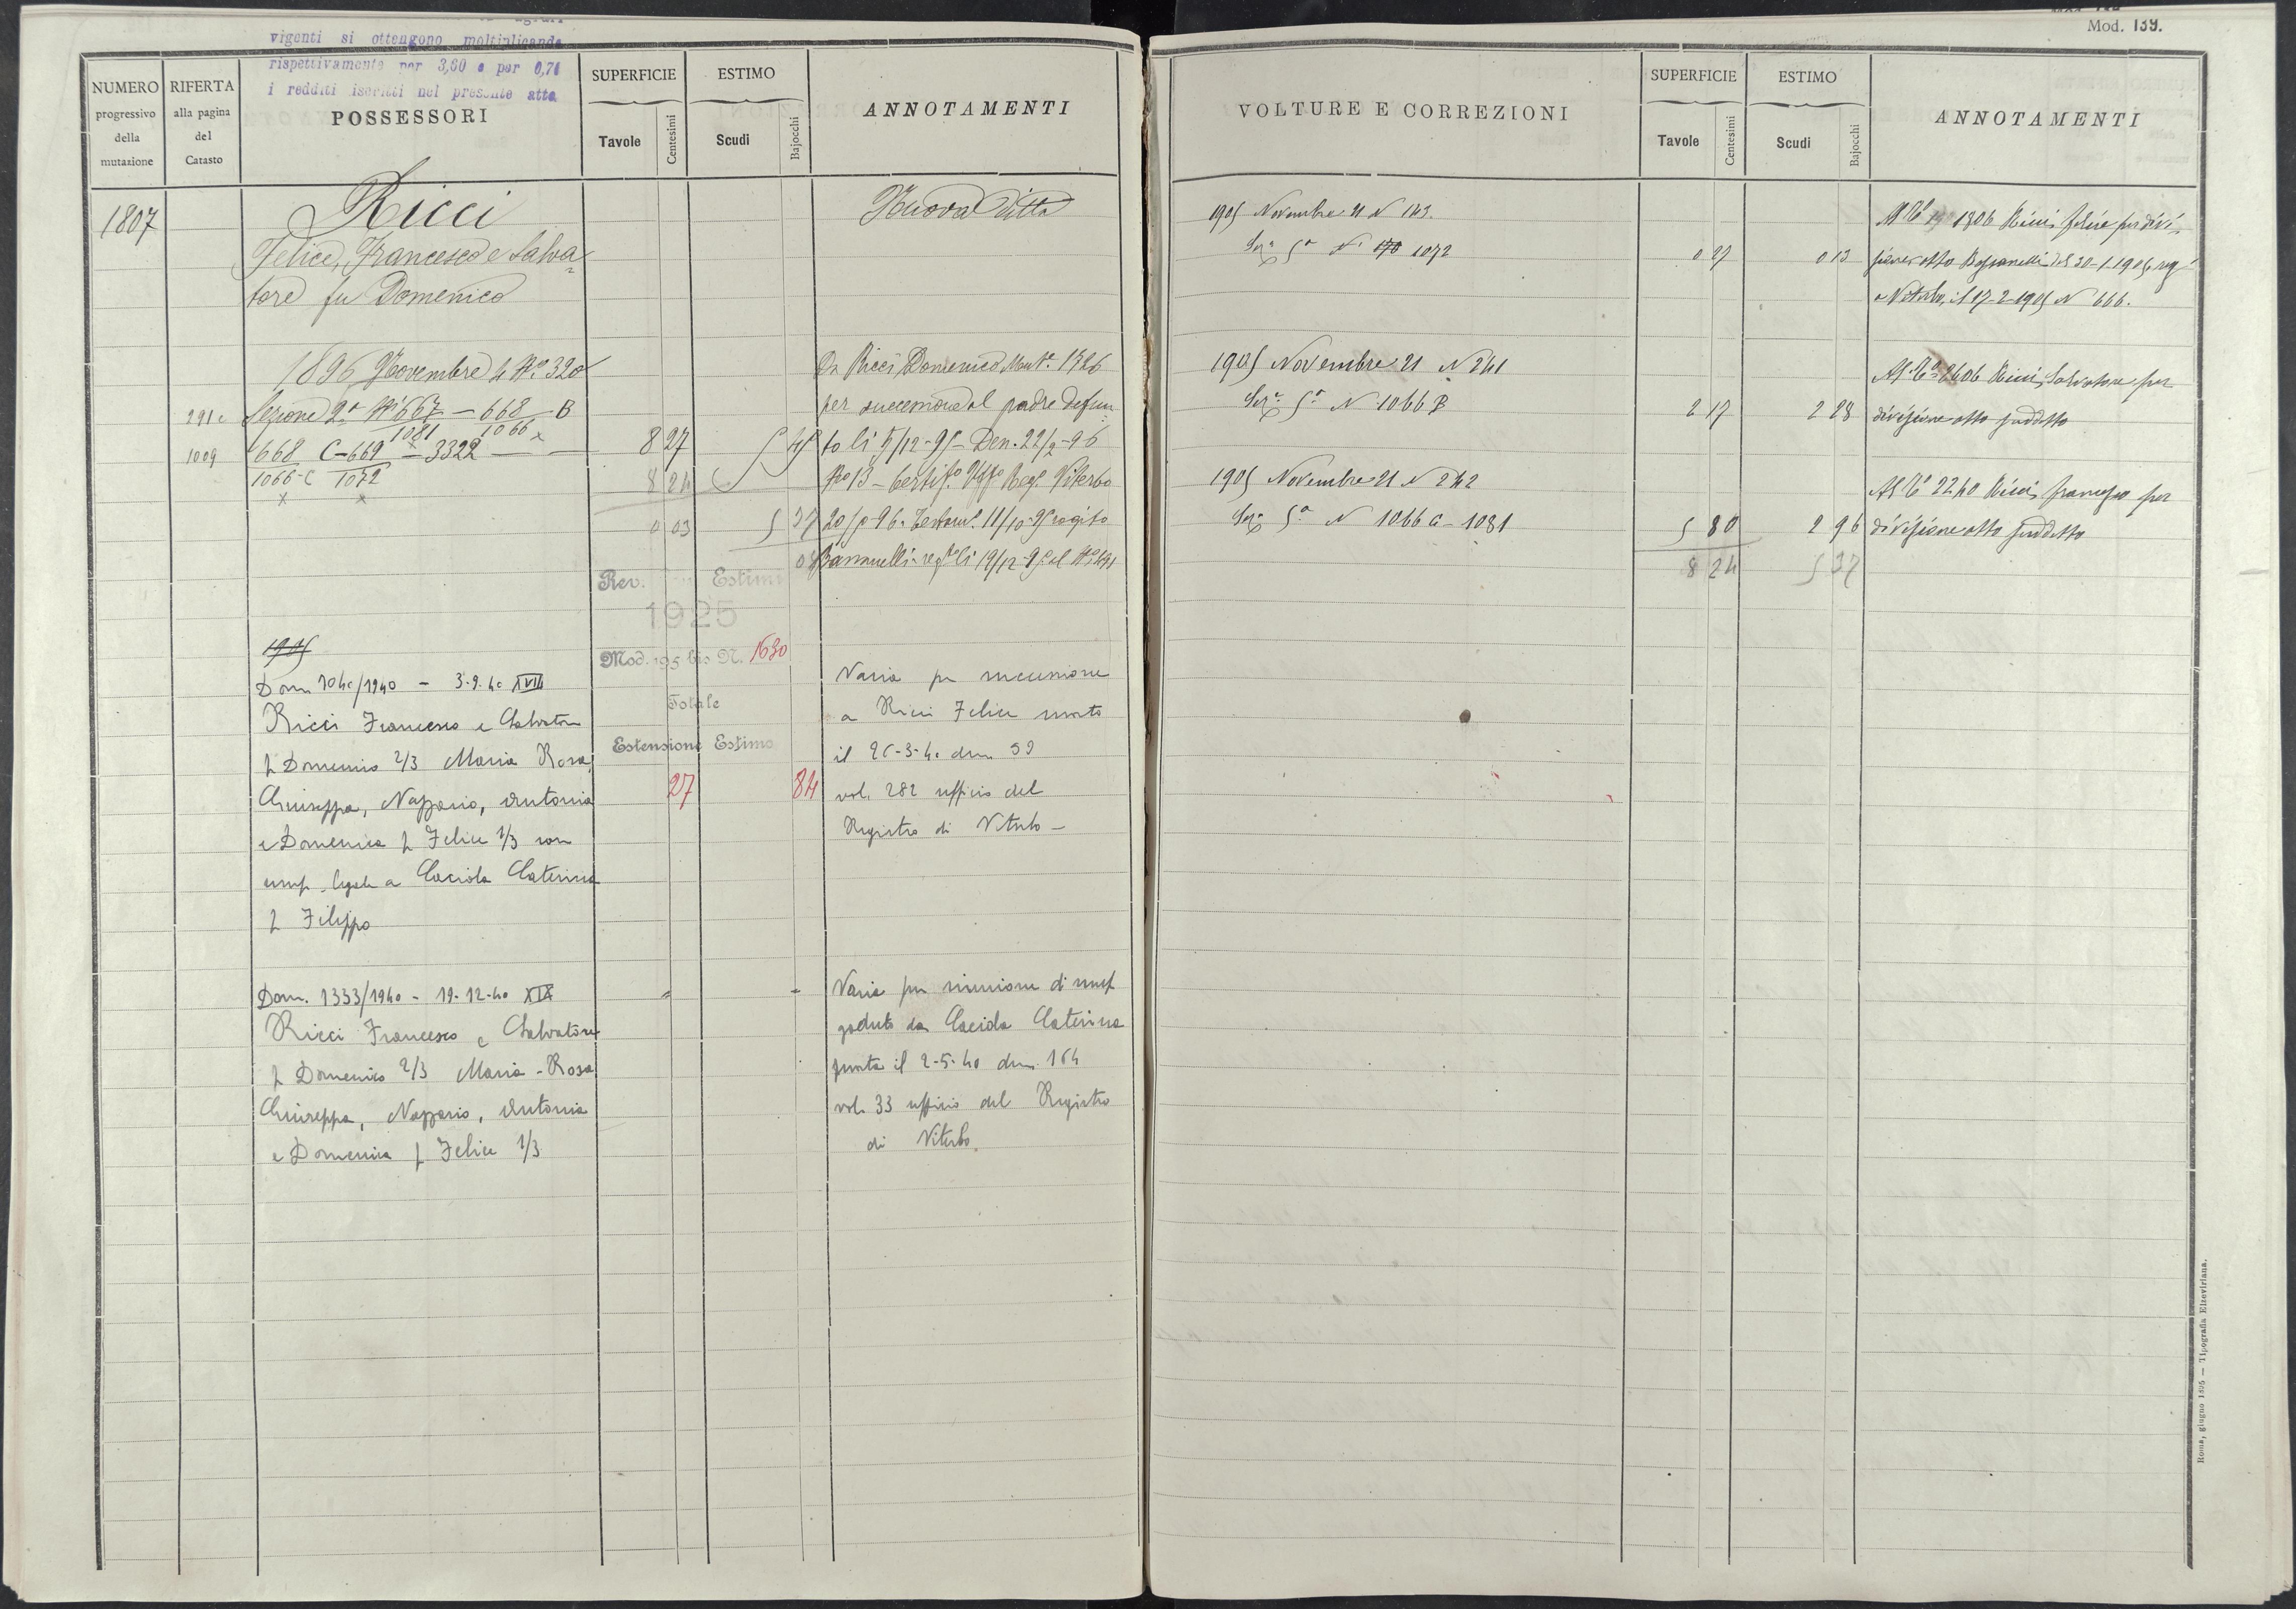 vigenti si ottengono moltiplicando
rispettivamente per 3,60 e per 0,71
i redditi iscritti nel presente atto
NUMERO progressivo della mutazione
RIFERTA alla pagina del Catasto
POSSESSORI
SUPERFICIE
Tavole
Centesimi
ESTIMO
Scudi
Bajocchi
ANNOTAMENTI
1807
Ricci
Nuova Ditta
Felice, Francesco e Salva-
tore fu Domenico
1896 Novembre 4 No. 320
Da Ricci Domenico 1726
Sezione 2a Ni 667 - 668 B
per successione al padre defun-
1081 1066
1009 668 C - 669 - 3322 8 27 5 45
to li 5/12-95 Den. 22/2-96
1066-C 1072
8 24
No 13 - Certif. Uff. Reg. Viterbo
0 03 5 37
08
Rev. Estimi
1925
1905
Mod. 195 bis N. 1630
Dom. 1040/1940 - 3.9.40 XVIII
Varia per successione
Totale
Ricci Francesco e Salvatore
a Ricci Felice morto
Estensione Estimo
f Domenico 2/3 Maria Rosa,
il 26-3-40 den. 59
27 84
Giuseppa, Nazzareno, Antonia
vol. 282 ufficio del
e Domenica f Felice 1/3 con
Registro di Viterbo -
usuf. legale a Caciola Caterina
f Filippo
Dom. 1333/1940 - 19-12-40 XIX
Varia per riunione di usuf.
Ricci Francesco e Salvatore
goduto da Caciola Caterina
f Domenico 2/3 Maria - Rosa
il 2-5-40 den. 164
Giuseppa, Nazzareno, Antonia
vol. 33 ufficio del Registro
e Domenica f Felice 1/3
di Viterbo.
Mod. 139.
VOLTURE E CORREZIONI
SUPERFICIE
Tavole
Centesimi
ESTIMO
Scudi
Bajocchi
ANNOTAMENTI
1905 Novembre 21 N 143.
1806 Ricci Felice per divi-
Sez. 5a N. 170 1072 0 27 0 13
sione atto del 30-1-1905 reg
a Viterbo, il 17-2-1905 N 666.
1905 Novembre 21 N 241
2606 Ricci Salvatore per
Sez. 5a N 1066 B 2 17 2 28
divisione atto suddetto
1905 Novembre 21 N 242
2240 Ricci Francesco per
Sez. 5a N 1066 C - 1081 5 80 2 96
divisione atto suddetto
8 24 5 37
Roma, giugno 1895 — Tipografia Elzeviriana.